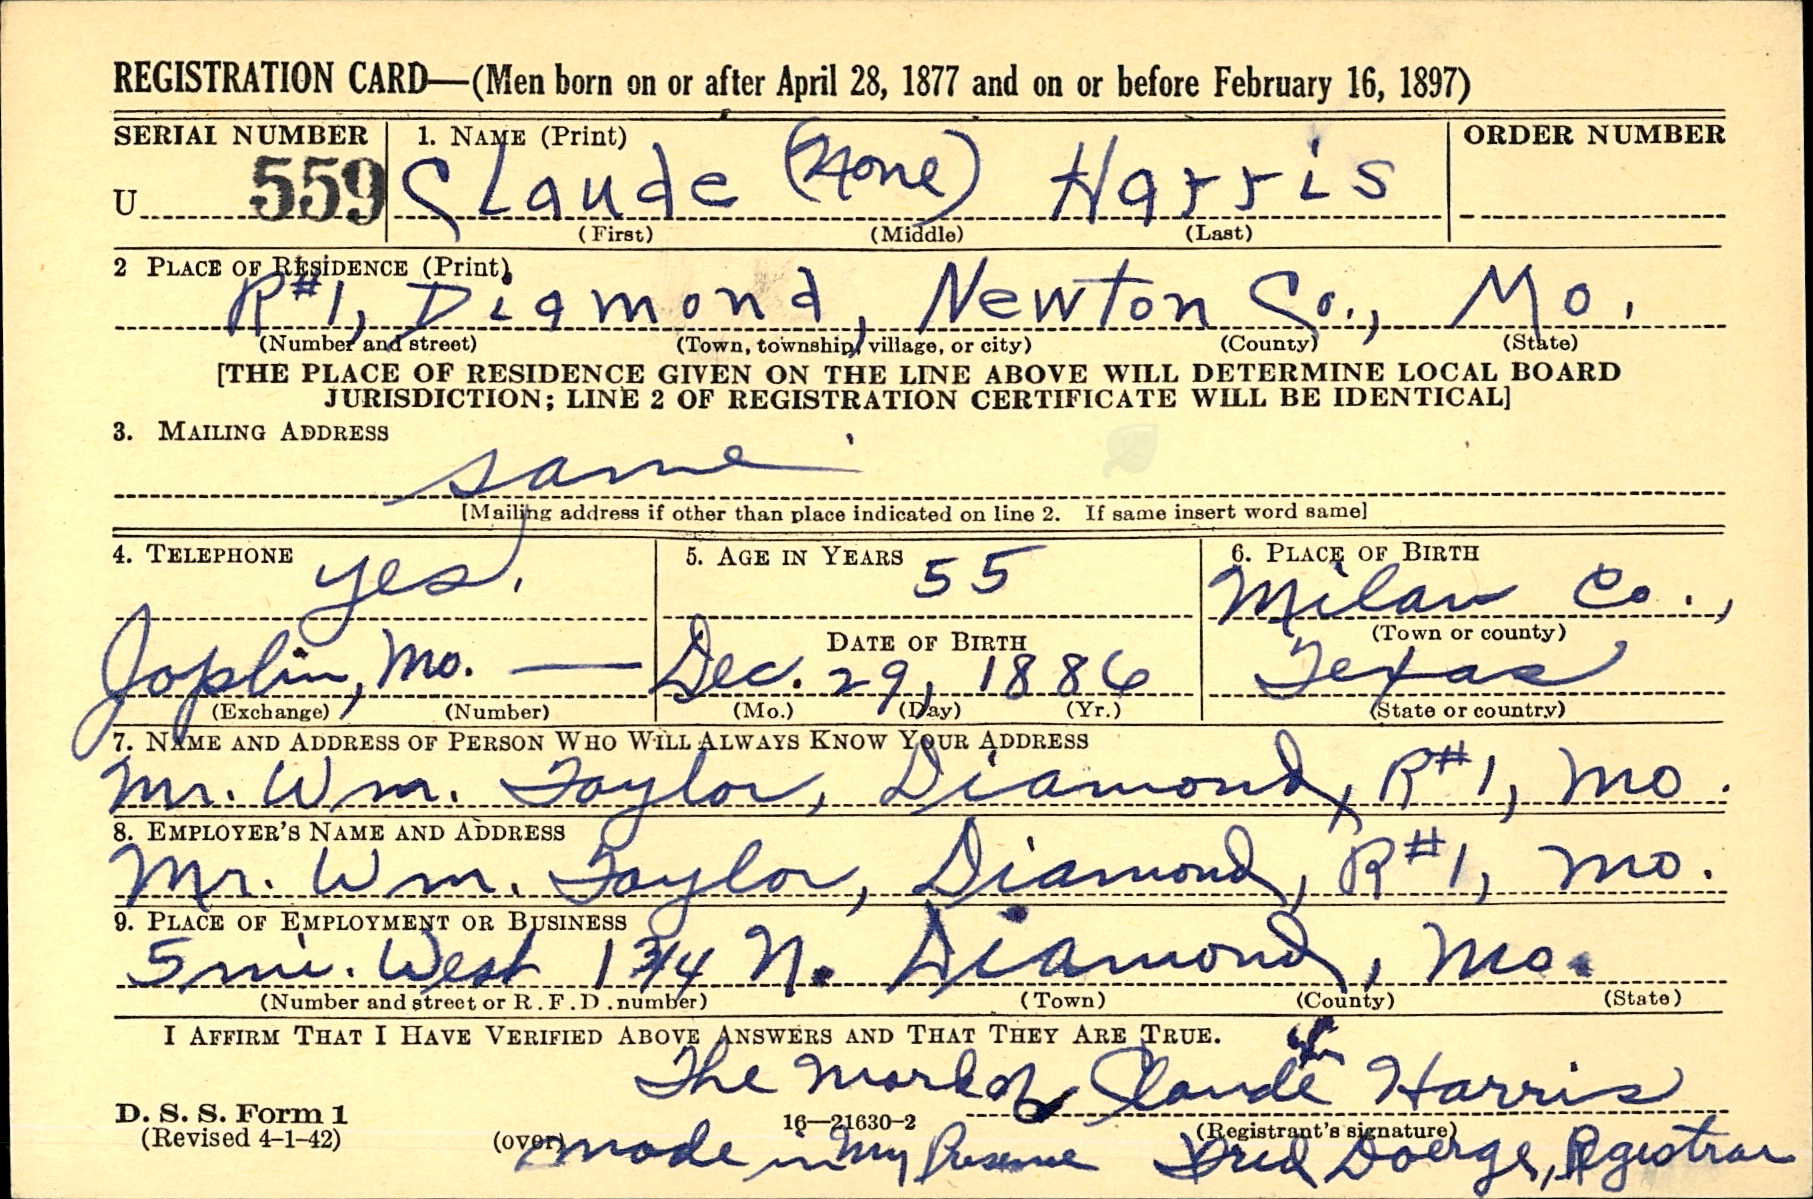 REGISTRATION CARD—(Men born on or after April 28, 1877 and on or before February 16, 1897)
SERIAL NUMBER
1. NAME (Print)
ORDER NUMBER
U 559
Claude (None) Harris
(First) (Middle) (Last)
2 PLACE OF RESIDENCE (Print)
R#1, Diamond, Newton Co., Mo.
(Number and street) (Town, township, village, or city) (County) (State)
[THE PLACE OF RESIDENCE GIVEN ON THE LINE ABOVE WILL DETERMINE LOCAL BOARD
JURISDICTION; LINE 2 OF REGISTRATION CERTIFICATE WILL BE IDENTICAL]
3. MAILING ADDRESS
same
[Mailing address if other than place indicated on line 2. If same insert word same]
4. TELEPHONE
yes,
Joplin, Mo. —
(Exchange) (Number)
5. AGE IN YEARS
55
DATE OF BIRTH
Dec. 29, 1886
(Mo.) (Day) (Yr.)
6. PLACE OF BIRTH
Milan Co.,
(Town or county)
Texas
(State or country)
7. NAME AND ADDRESS OF PERSON WHO WILL ALWAYS KNOW YOUR ADDRESS
Mr. Wm. Taylor, Diamond, R#1, Mo.
8. EMPLOYER'S NAME AND ADDRESS
Mr. Wm. Taylor, Diamond, R#1, Mo.
9. PLACE OF EMPLOYMENT OR BUSINESS
5 mi. West 1 3/4 N. Diamond, Mo.
(Number and street or R. F. D. number) (Town) (County) (State)
I AFFIRM THAT I HAVE VERIFIED ABOVE ANSWERS AND THAT THEY ARE TRUE.
The mark of Claude Harris
D. S. S. Form 1
(Revised 4-1-42)
(over)
16—21630-2
(Registrant's signature)
made in my Presence Fred Doerge, Rgistrar